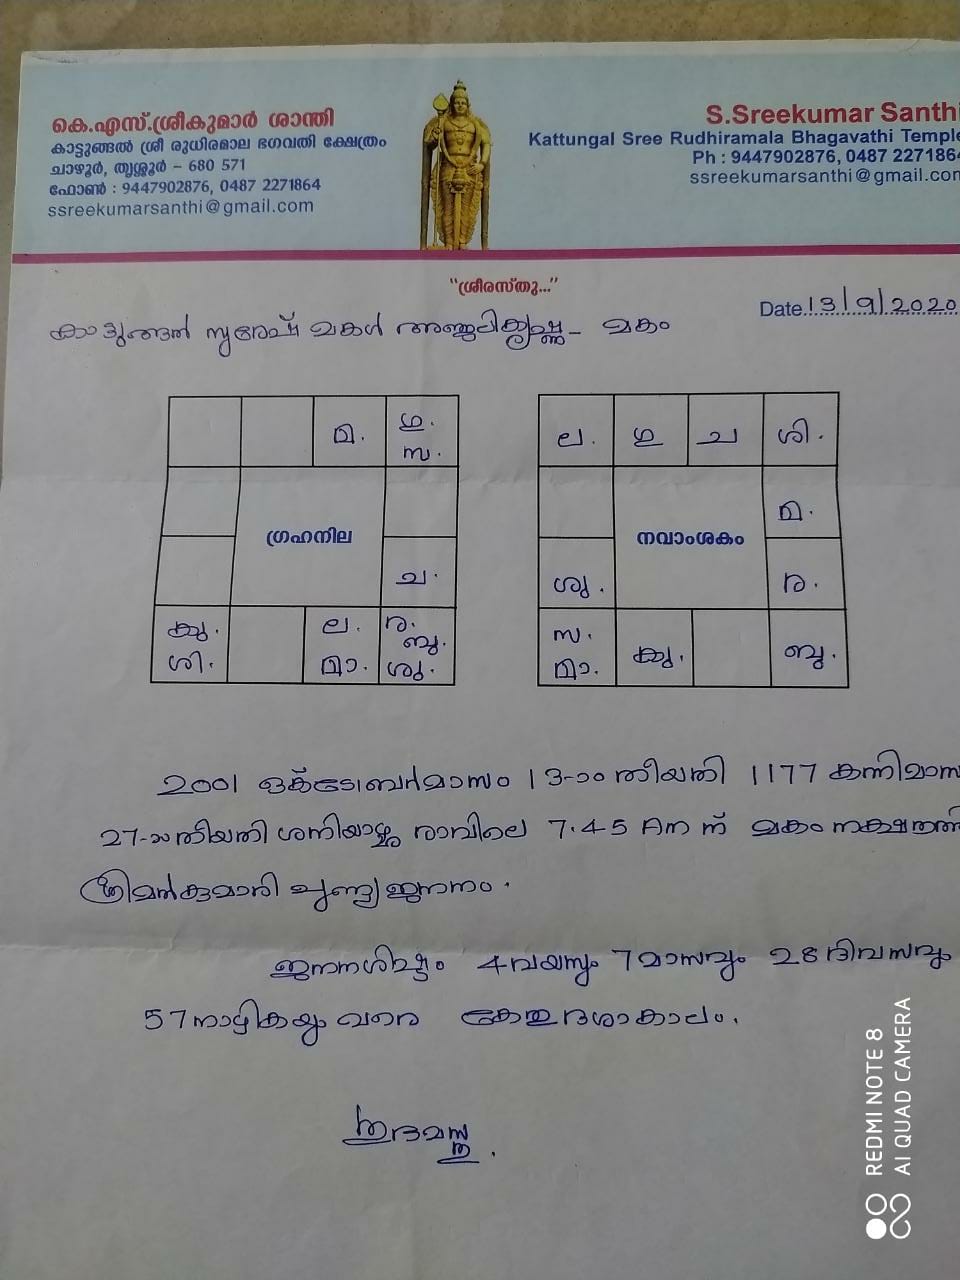 കെ.എസ്.ശ്രീകുമാർ ശാന്തി
കാട്ടുങ്ങൽ ശ്രീ രുധിരമാല ഭഗവതി ക്ഷേത്രം
ചാഴൂർ, തൃശ്ശൂർ – 680 571
ഫോൺ : 9447902876, 0487 2271864
ssreekumarsanthi@gmail.com
S.Sreekumar Santhi
Kattungal Sree Rudhiramala Bhagavathi Temple
Ph : 9447902876, 0487 2271864
ssreekumarsanthi@gmail.com
"ശ്രീരസ്തു..."
Date 13/9/2020
കാട്ടുങ്ങൽ സുരേഷ് മകൾ അഞ്ജലികൃഷ്ണ - മകം
മ. ഗു. സ.
ഗ്രഹനില
ച.
കു. ശി. ല. മാ. ര. ബു. ശു.
ല. ഗു ച ശി.
നവാംശകം
മ.
ശു. ര.
സ. മാ. കു. ബു.
2001 ഒക്ടോബർമാസം 13-ാം തീയതി 1177 കന്നിമാസ
27-ാം തീയതി ശനിയാഴ്ച രാവിലെ 7.45 Am ന് മകം നക്ഷത്രത്തിൽ
ശ്രീമൽകുമാരി പുണ്യജനനം.
ജനനശിഷ്ടം 4 വയസ്സും 7 മാസവും 28 ദിവസവും
57 നാഴികയും വരെ കേതുദശാകാലം.
ശുഭമസ്തു.
REDMI NOTE 8
AI QUAD CAMERA